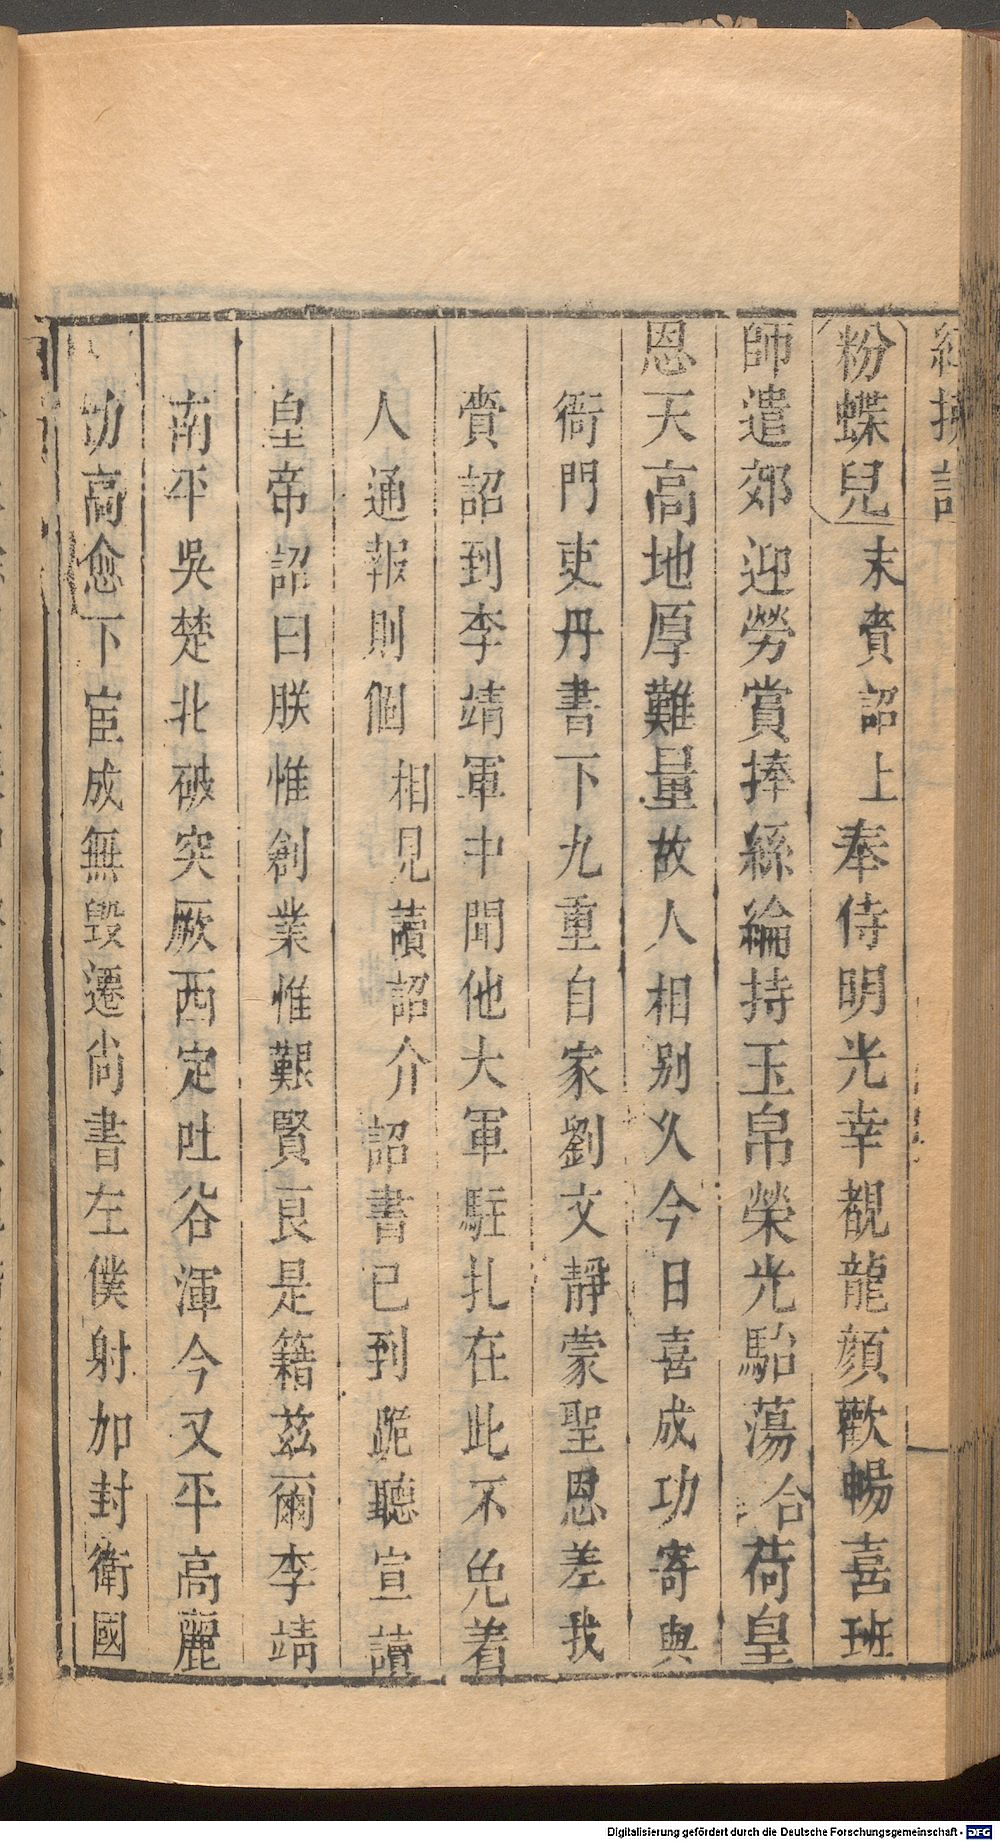 粉蝶兒末賫詔上奉侍明光幸覩龍顏歡暢喜班
師遣郊迎勞賞捧絲綸持玉帛榮光駘蕩合荷皇
恩天高地厚難量故人相別乆今日喜成功寄與
衙門吏丹書下九重自家劉文靜蒙聖恩差我
賫詔到李靖軍中聞他大軍駐扎在此不免着
人通報則個相見讀詔介詔書已到跪聽宣讀
皇帝詔曰朕惟創業惟艱賢良是籍茲爾李靖
南平吳楚北破突厥西定吐谷渾今又平高麗
功高愈下宦成無毀遷尚書左僕射加封衛國
Digitalisierung gefördert durch die Deutsche Forschungsgemeinschaft - DFG